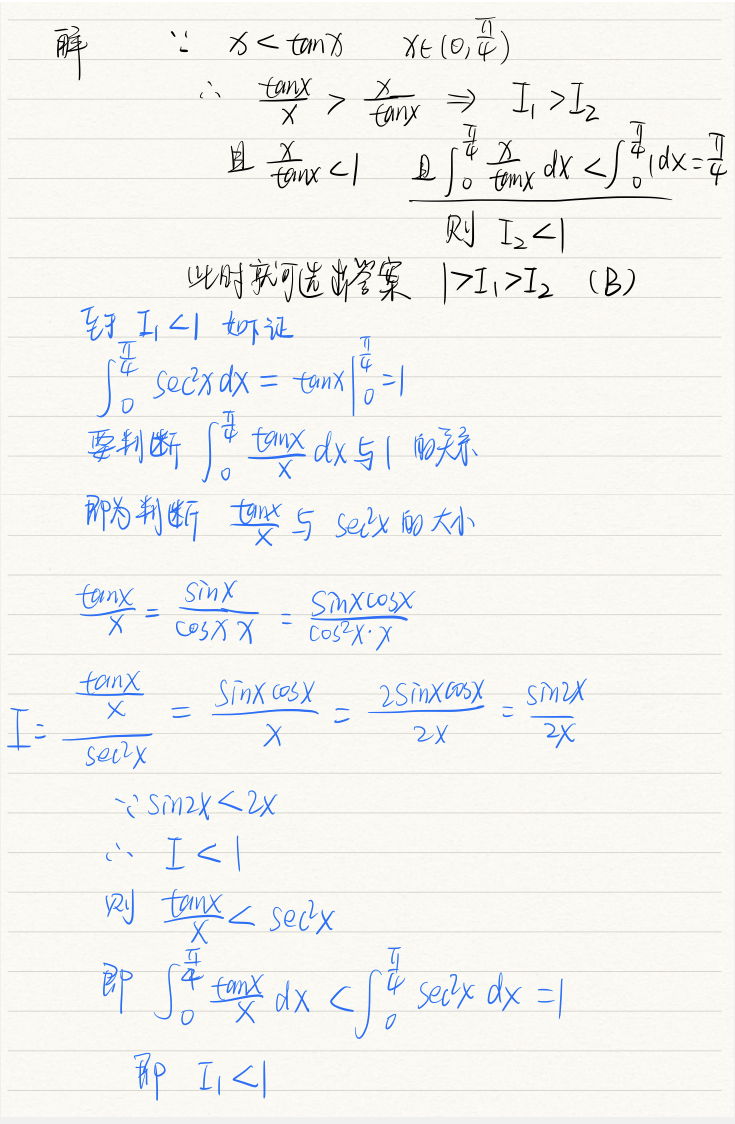 解 ∵ x < tanx x∈(0, π/4)
∴ tanx/x > x/tanx ⇒ I₁ > I₂
且 x/tanx < 1 且 ∫₀^(π/4) x/tanx dx < ∫₀^(π/4) 1dx = π/4
则 I₂ < 1
此时就可选出答案 1 > I₁ > I₂ (B)
至于 I₁ < 1 如下证
∫₀^(π/4) sec²x dx = tanx |₀^(π/4) = 1
要判断 ∫₀^(π/4) tanx/x dx 与 1 的关系
即为判断 tanx/x 与 sec²x 的大小
tanx/x = sinx/(cosx x) = sinxcosx/(cos²x·x)
I = (tanx/x)/(sec²x) = sinxcosx/x = 2sinxcosx/2x = sin2x/2x
∵ sin2x < 2x
∴ I < 1
则 tanx/x < sec²x
即 ∫₀^(π/4) tanx/x dx < ∫₀^(π/4) sec²x dx = 1
即 I₁ < 1